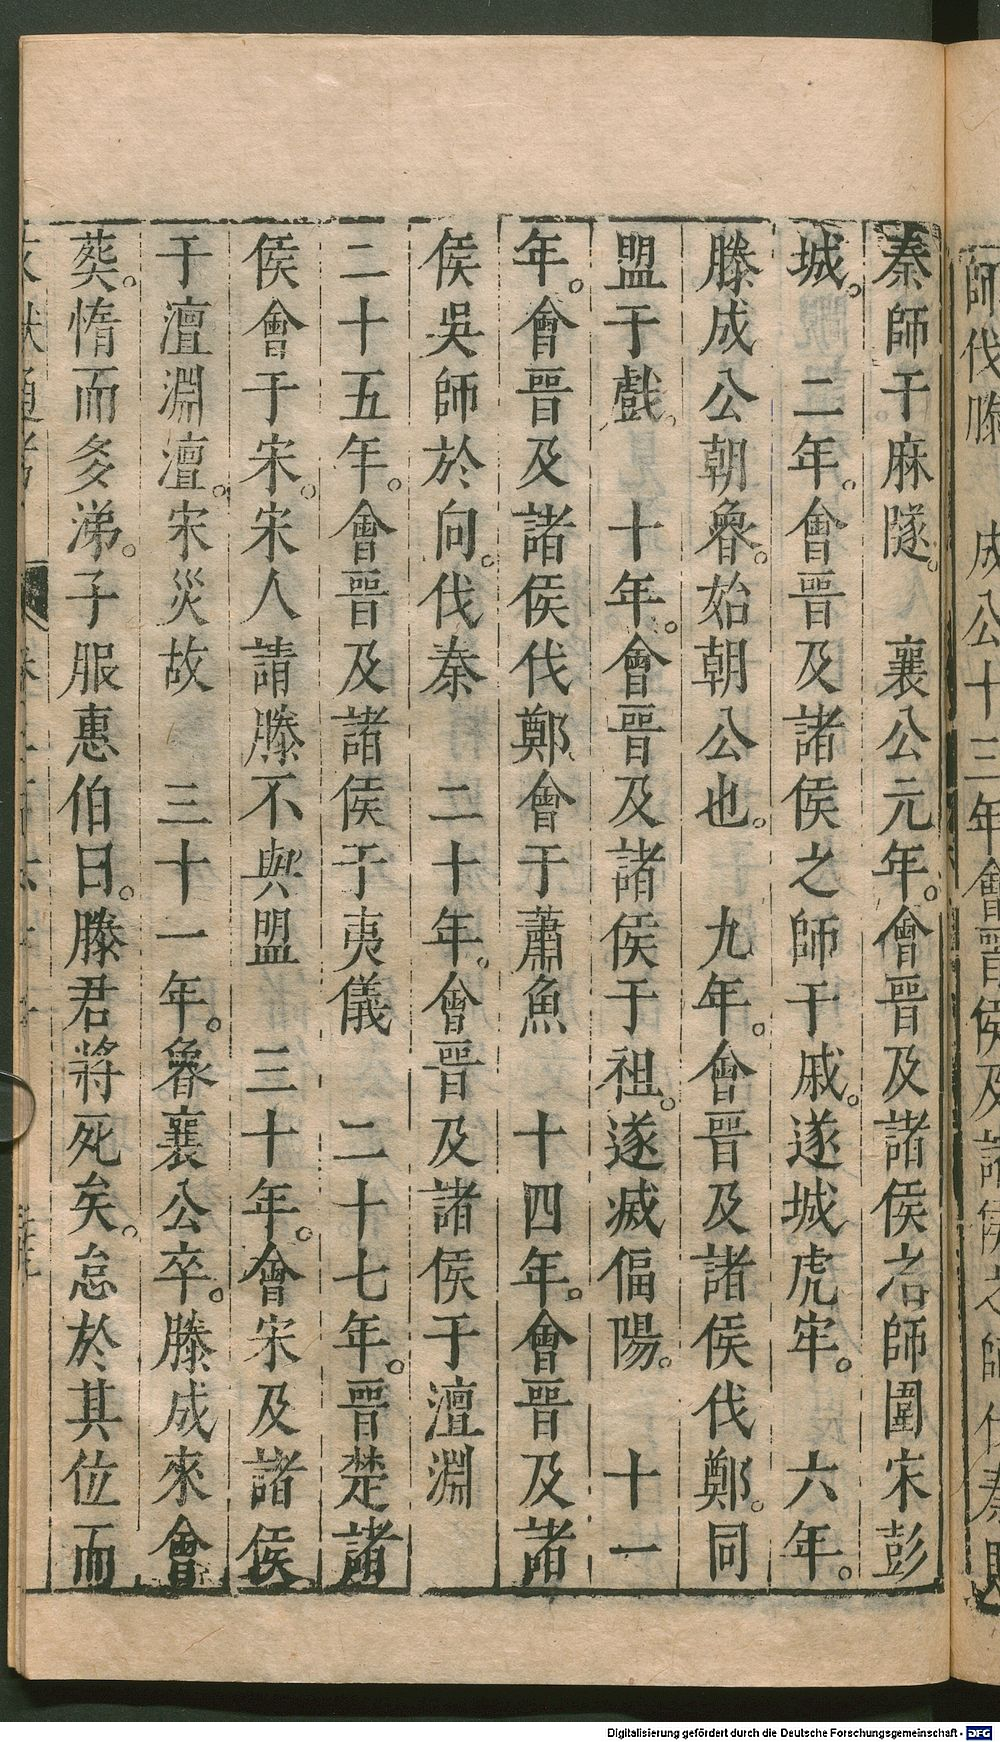 師伐滕　成公十三年會晉侯及諸侯之師伐秦
秦師于麻隧。　襄公元年。會晉及諸侯之師圍宋彭
城。　二年。會晉及諸侯之師于戚。遂城虎牢。　六年。
滕成公朝魯。始朝公也。　九年。會晉及諸侯伐鄭。同
盟于戲。　十年。會晉及諸侯于柤。遂滅偪陽。　十一
年。會晉及諸侯伐鄭會于蕭魚　十四年。會晉及諸
侯吳師於向。伐秦　二十年。會晉及諸侯于澶淵
二十五年。會晉及諸侯于夷儀　二十七年。晉楚諸
侯會于宋。宋人請滕不與盟　三十年。會宋及諸侯
于澶淵澶。宋災故　三十一年。魯襄公卒。滕成來會
葬。惰而多涕。子服惠伯曰。滕君將死矣。怠於其位而
文獻通考
Digitalisierung gefördert durch die Deutsche Forschungsgemeinschaft - DFG